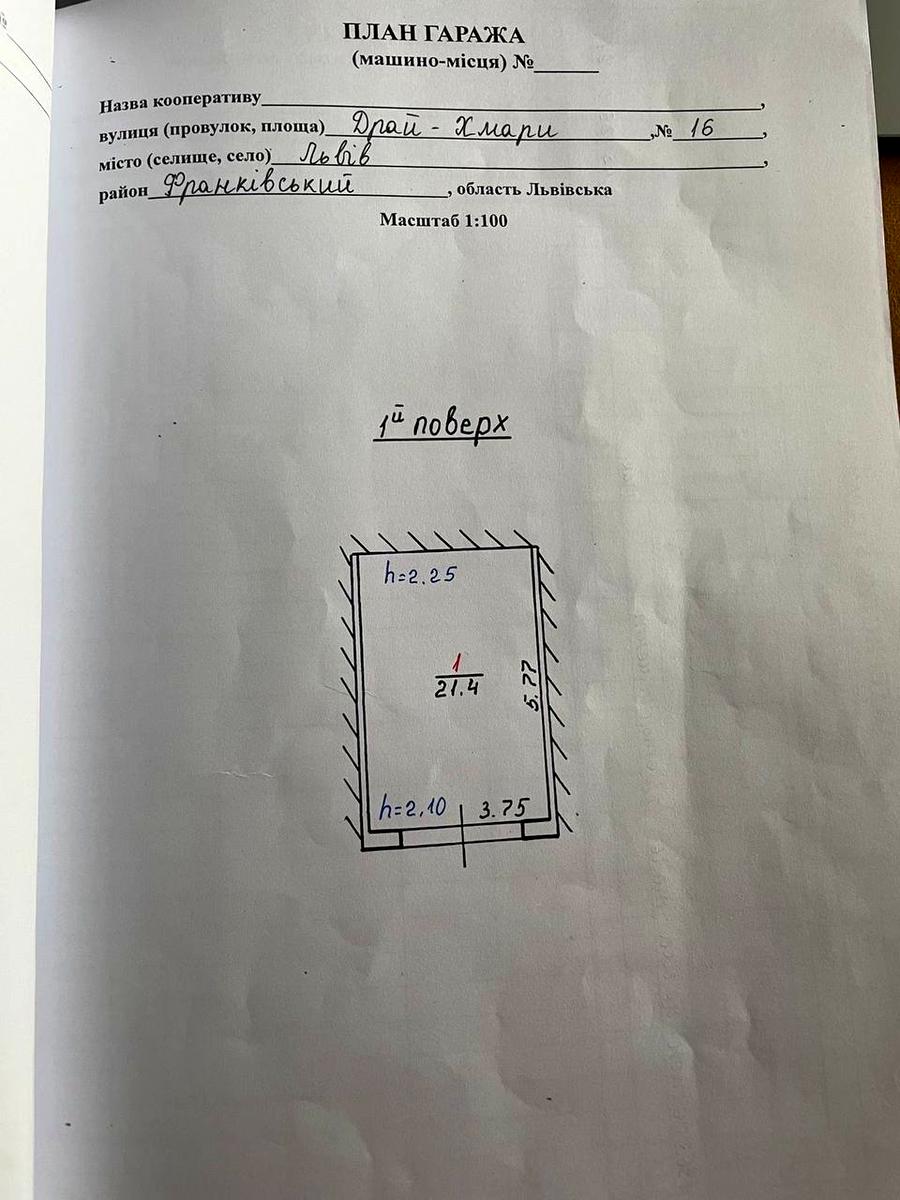 ПЛАН ГАРАЖА
(машино-місця) №______
Назва кооперативу____________________,
вулиця (провулок, площа) Драй - Хмари ,№ 16 ,
місто (селище, село) Львів ,
район Франківський , область Львівська
Масштаб 1:100
1й поверх
h=2.25
1
21.4
5.77
h=2.10 3.75